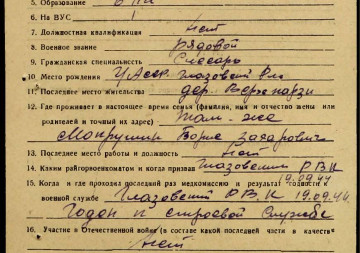 5. Образование
6. На ВУС
7. Должностная квалификация нет
8. Военное звание Рядовой
9. Гражданская специальность Слесарь
10. Место рождения УАССР Глазовский
11. Последнее место жительства дер.
12. Где проживает в настоящее время семья (фамилия, имя и отчество жены или
родителей и точный их адрес) Там-же
Макрушин Борис Захарович
13. Последнее место работы и должность нет
14. Каким райгорвоенкоматом и когда призван Глазовским Р.В.К
19.09.44
15. Когда и где проходил последний раз медкомиссию и результат годности к
военной службе Глазовский Р.В.К 19.09.44
Годен к строевой службе
16. Участие в Отечественной войне (в составе какой последней части и в качестве
нет